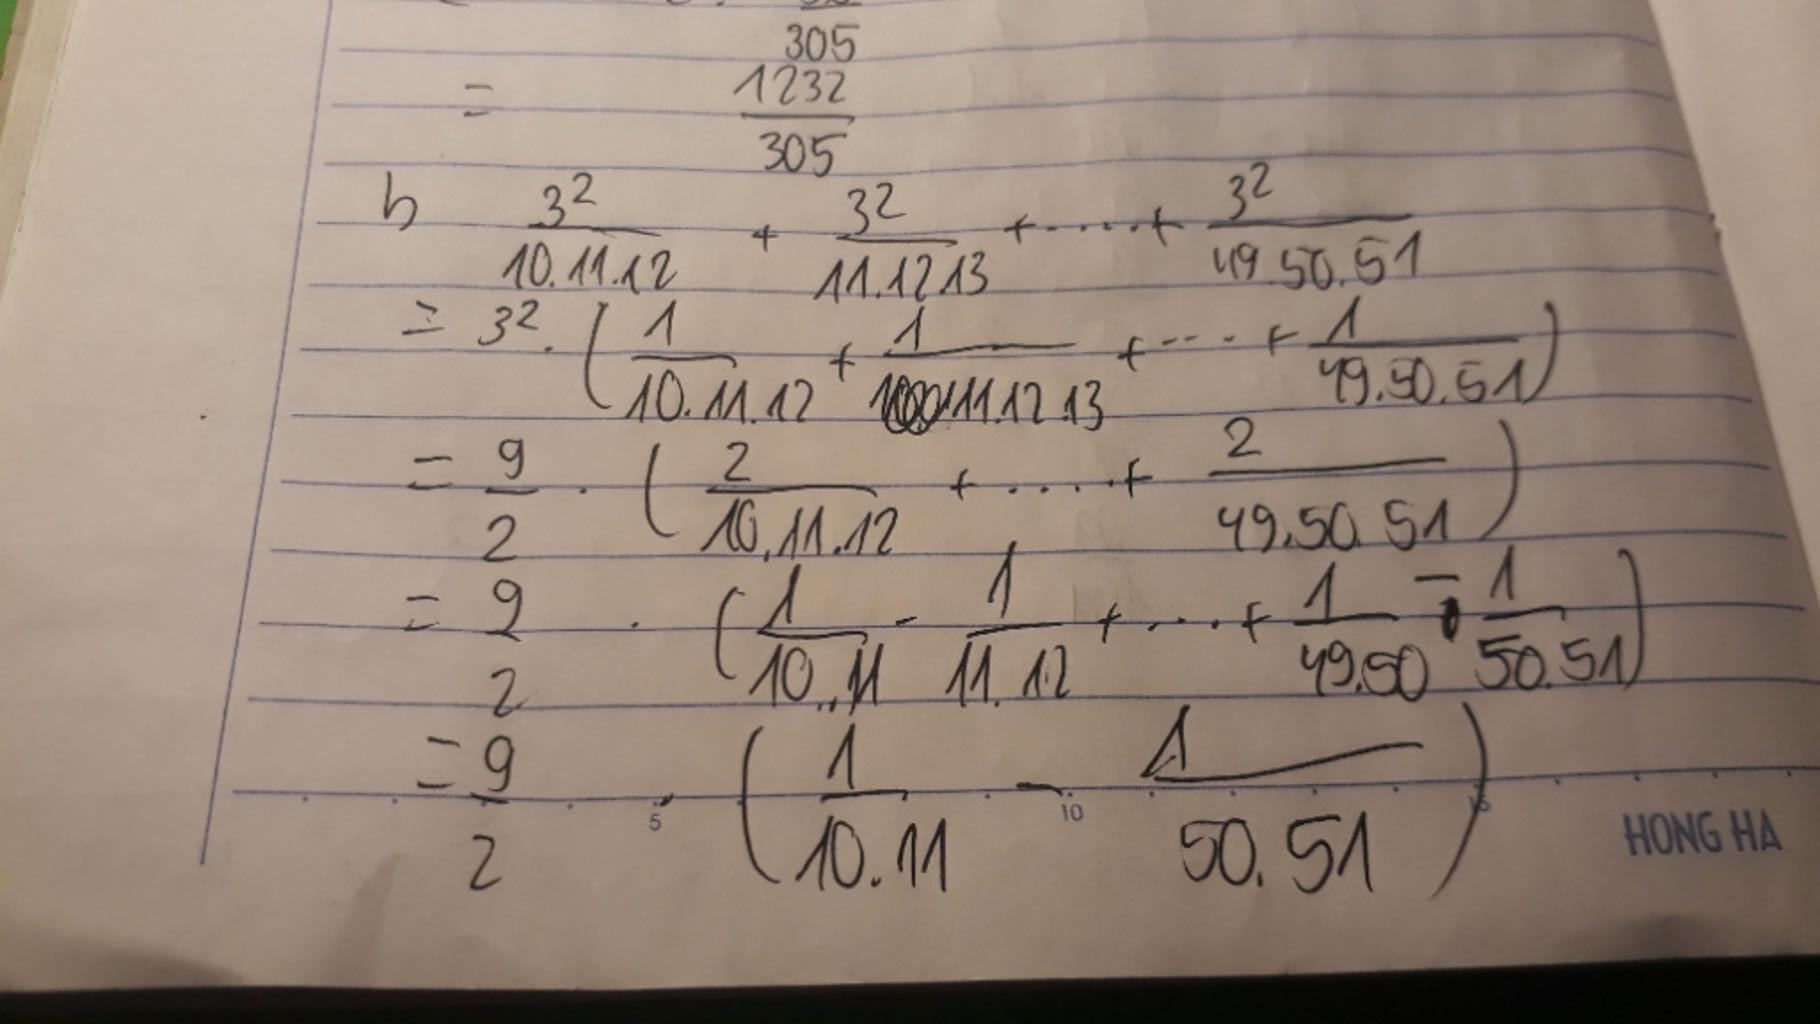 305
= 1232/305
b 3²/10.11.12 + 3²/11.12 13 +.....+ 3²/49.50.51
= 3². (1/10.11.12 + 1/11.12.13 +....+ 1/49.50.51)
= 9/2 . (2/10.11.12 +.....+ 2/49.50.51)
= 9/2 . (1/10.11 - 1/11.12 +....+ 1/49.50 - 1/50.51)
= 9/2 . (1/10.11 - 1/50.51)
5 10 15
HONG HA